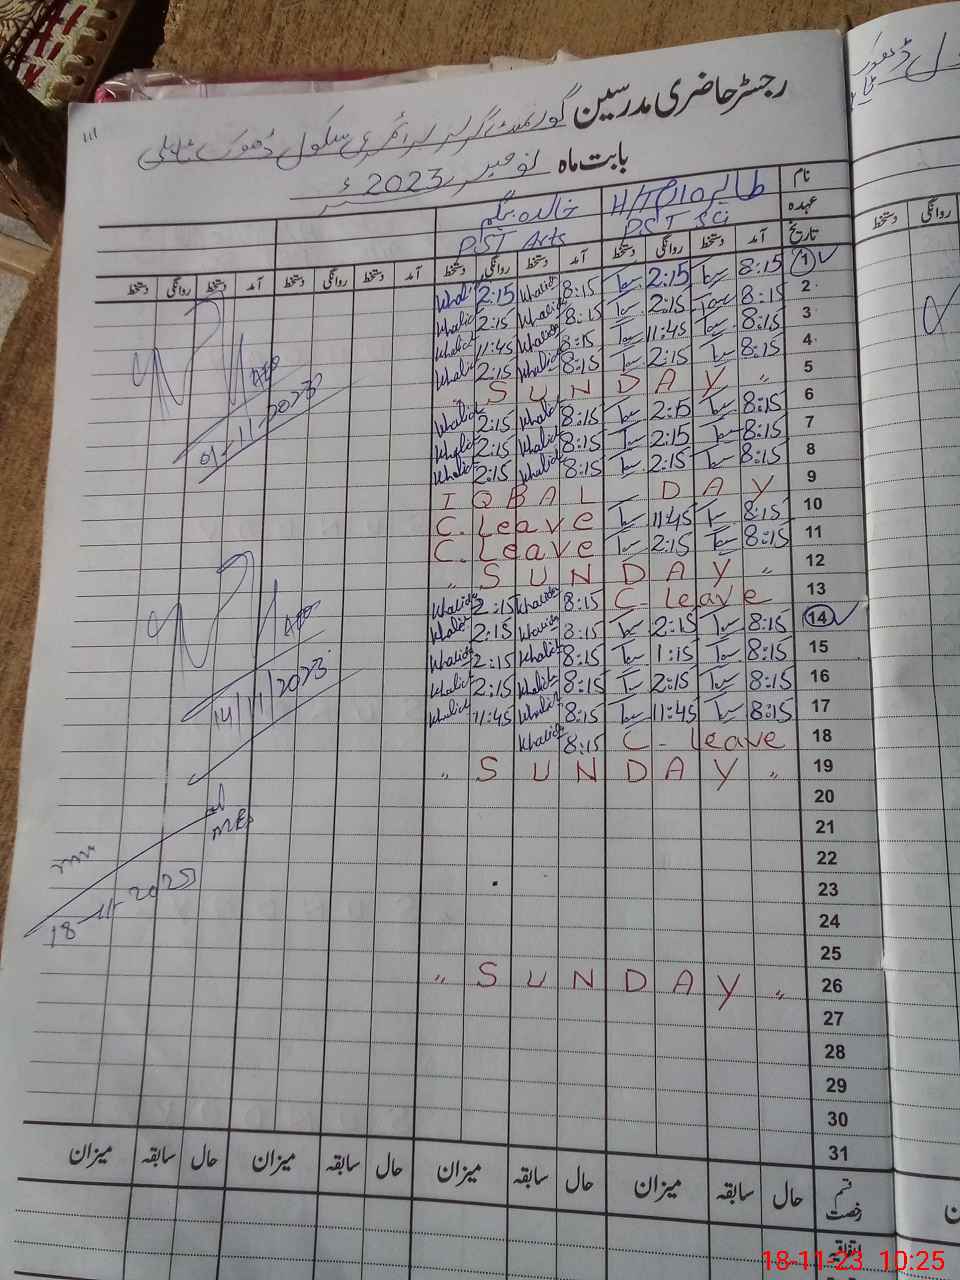 رجسٹر حاضری مدرسین گورنمنٹ گرلز پرائمری سکول ڈھوک ٹاہلی
بابت ماہ نومبر 2023ء
نام
عہدہ
خالدہ بیگم
PST Arts
PST Sci
تاریخ آمد دستخط روانگی دستخط آمد دستخط روانگی دستخط آمد دستخط روانگی دستخط آمد دستخط روانگی دستخط
1 8:15 2:15 8:15 Khalida 2:15 Khalida
2 8:15 2:15 8:15 Khalida 2:15 Khalida
3 8:15 11:45 8:15 Khalida 11:45 Khalida
4 8:15 2:15 8:15 Khalida 2:15 Khalida
5 " SUNDAY "
6 8:15 2:15 8:15 Khalida 2:15 Khalida
7 8:15 2:15 8:15 Khalida 2:15 Khalida
8 8:15 2:15 8:15 Khalida 2:15 Khalida
9 IQBAL DAY
10 8:15 11:45 C. Leave
11 8:15 2:15 C. Leave
12 " SUNDAY "
13 C. Leave 8:15 Khalida 2:15 Khalida
14 8:15 2:15 8:15 Khalida 2:15 Khalida
15 8:15 1:15 8:15 Khalida 2:15 Khalida
16 8:15 2:15 8:15 Khalida 2:15 Khalida
17 8:15 11:45 8:15 Khalida 11:45 Khalida
18 C. Leave 8:15 Khalida
19 " SUNDAY "
20
21
22
23
24
25
26 " SUNDAY "
27
28
29
30
31
01-11-2023
14/11/2023
18-11-2023
قسم رخصت حال سابقہ میزان حال سابقہ میزان حال سابقہ میزان حال سابقہ میزان
اتفاقیہ
18-11-23 10:25